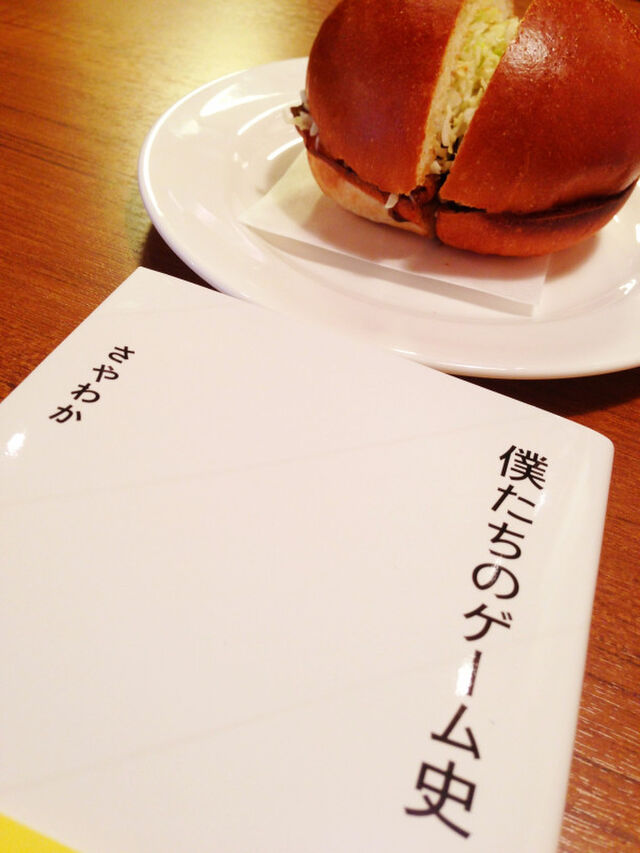 僕たちのゲーム史
さやわか